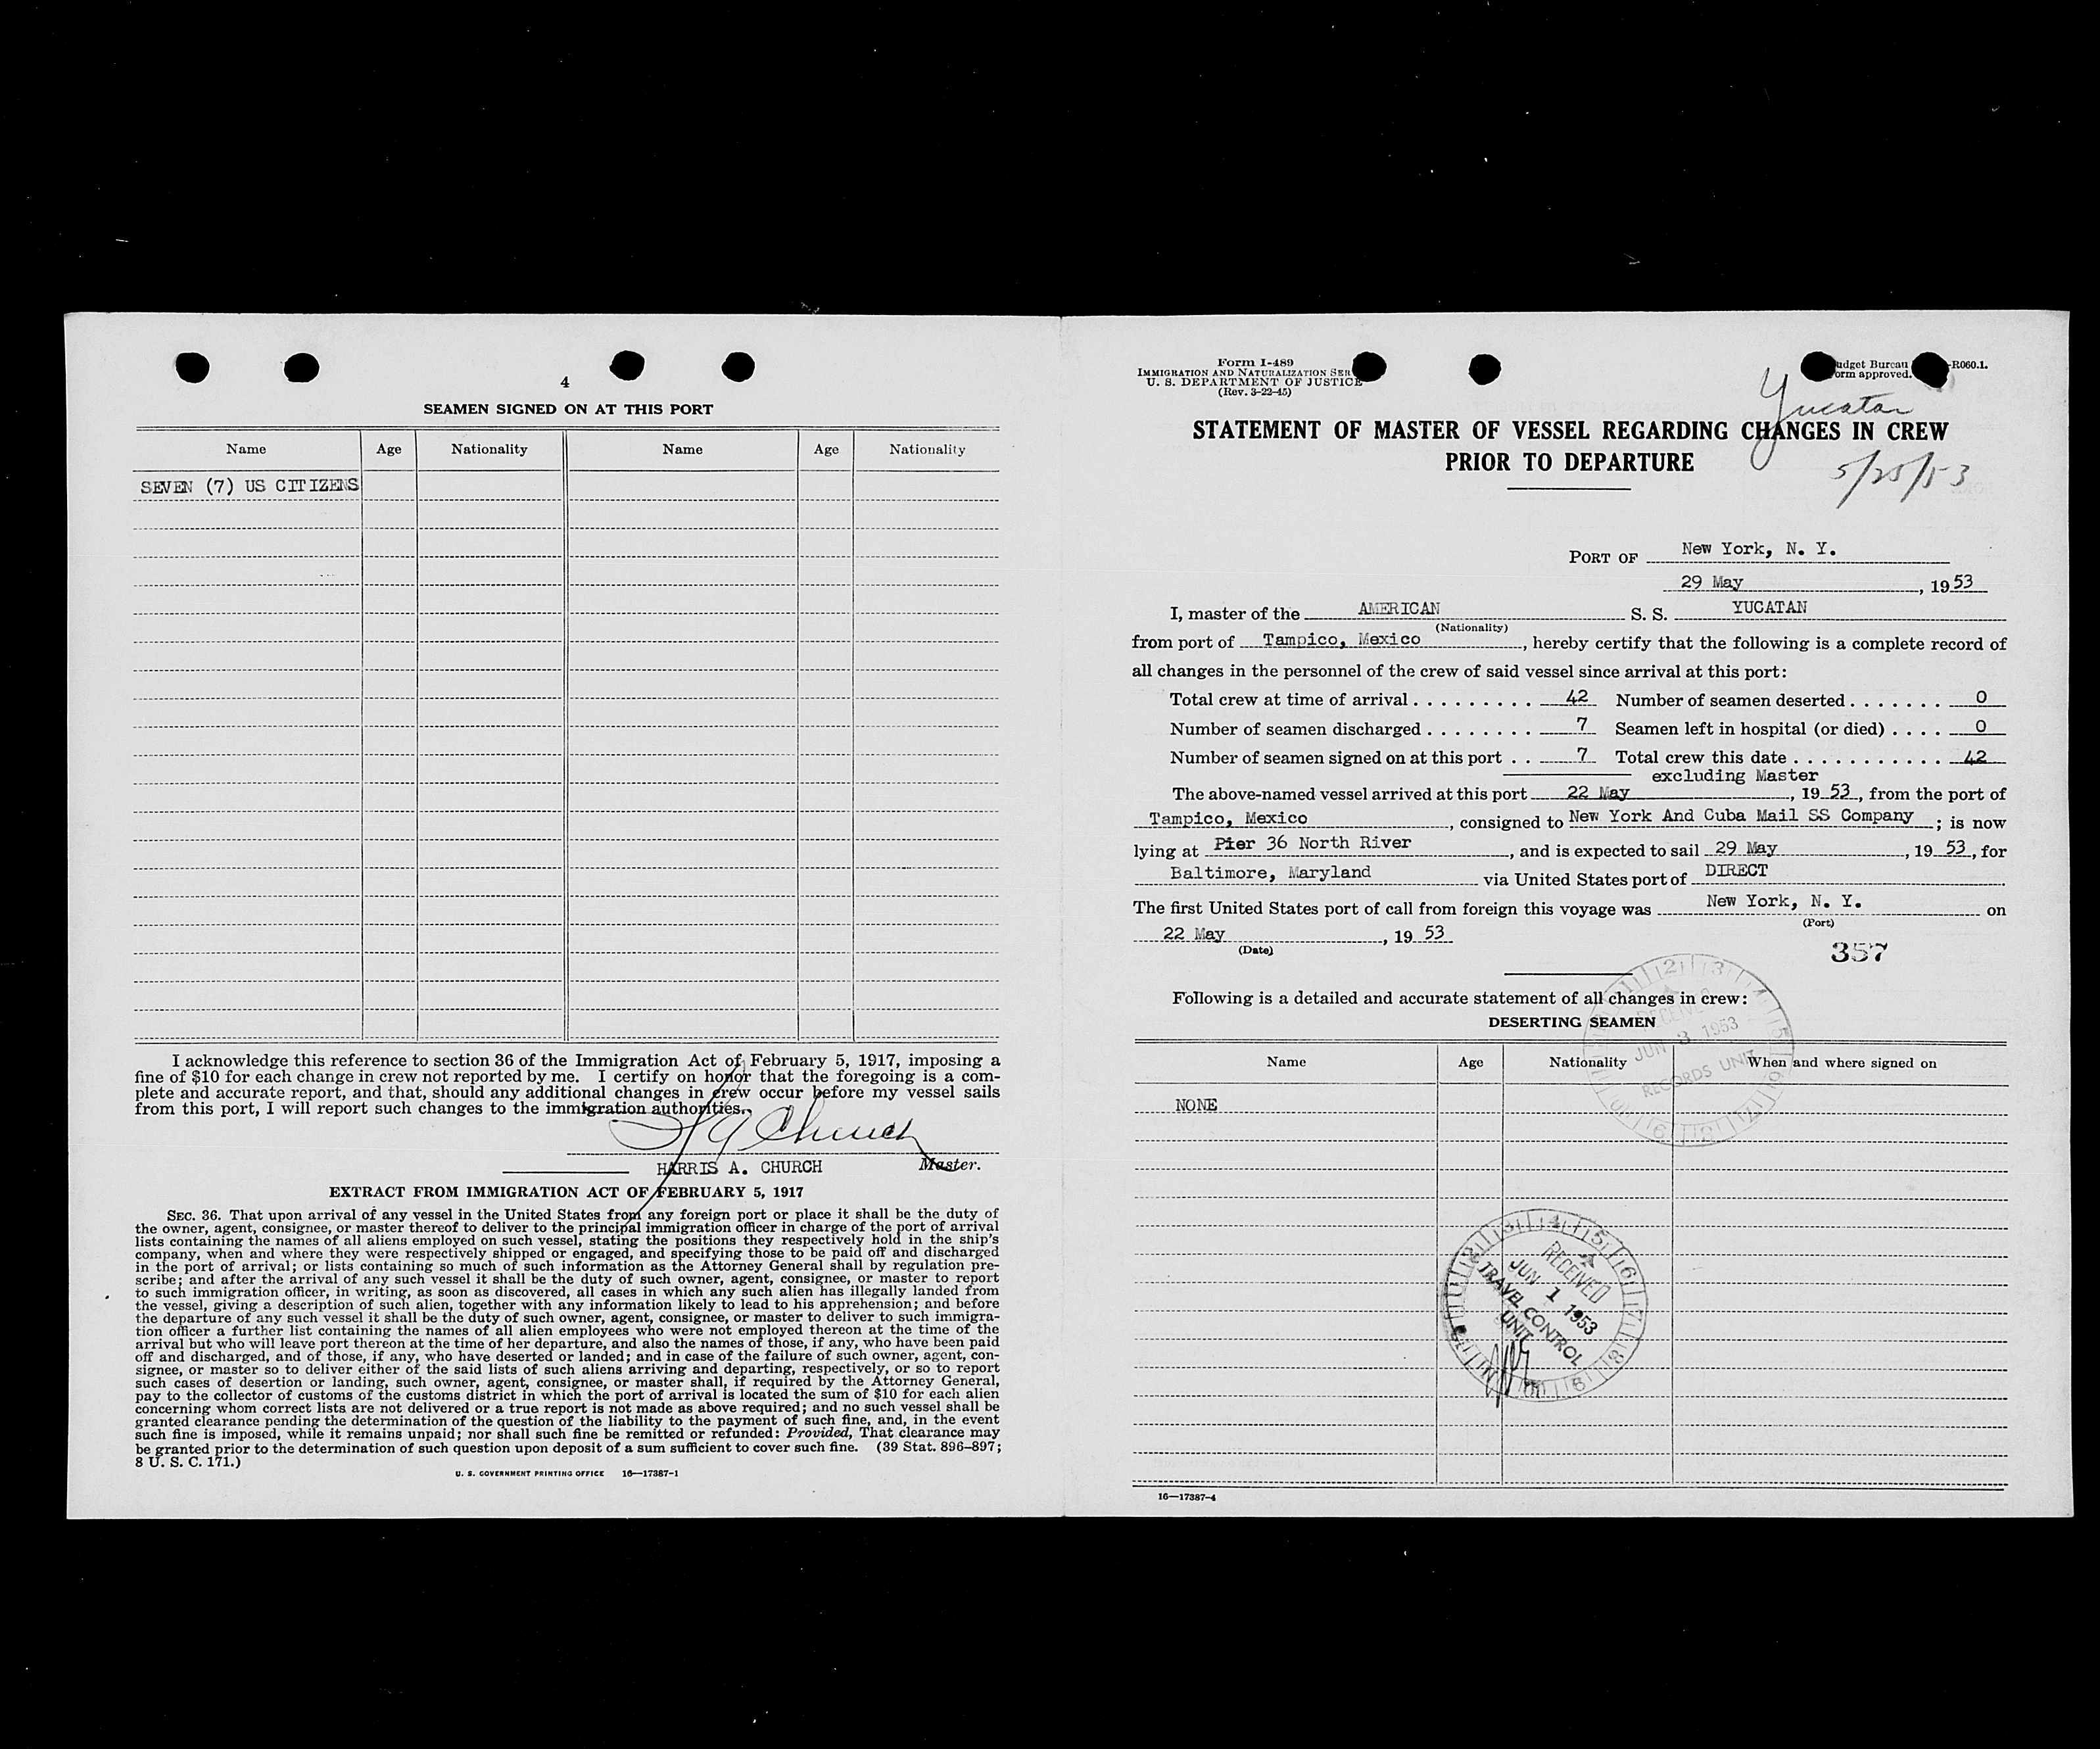 4
SEAMEN SIGNED ON AT THIS PORT
Name Age Nationality Name Age Nationality
SEVEN (7) US CITIZENS
I acknowledge this reference to section 36 of the Immigration Act of February 5, 1917, imposing a
fine of $10 for each change in crew not reported by me. I certify on honor that the foregoing is a com-
plete and accurate report, and that, should any additional changes in crew occur before my vessel sails
from this port, I will report such changes to the immigration authorities.
H A Church
HARRIS A. CHURCH Master.
EXTRACT FROM IMMIGRATION ACT OF FEBRUARY 5, 1917
SEC. 36. That upon arrival of any vessel in the United States from any foreign port or place it shall be the duty of
the owner, agent, consignee, or master thereof to deliver to the principal immigration officer in charge of the port of arrival
lists containing the names of all aliens employed on such vessel, stating the positions they respectively hold in the ship's
company, when and where they were respectively shipped or engaged, and specifying those to be paid off and discharged
in the port of arrival; or lists containing so much of such information as the Attorney General shall by regulation pre-
scribe; and after the arrival of any such vessel it shall be the duty of such owner, agent, consignee, or master to report
to such immigration officer, in writing, as soon as discovered, all cases in which any such alien has illegally landed from
the vessel, giving a description of such alien, together with any information likely to lead to his apprehension; and before
the departure of any such vessel it shall be the duty of such owner, agent, consignee, or master to deliver to such immigra-
tion officer a further list containing the names of all alien employees who were not employed thereon at the time of the
arrival but who will leave port thereon at the time of her departure, and also the names of those, if any, who have been paid
off and discharged, and of those, if any, who have deserted or landed; and in case of the failure of such owner, agent, con-
signee, or master so to deliver either of the said lists of such aliens arriving and departing, respectively, or so to report
such cases of desertion or landing, such owner, agent, consignee, or master shall, if required by the Attorney General,
pay to the collector of customs of the customs district in which the port of arrival is located the sum of $10 for each alien
concerning whom correct lists are not delivered or a true report is not made as above required; and no such vessel shall be
granted clearance pending the determination of the question of the liability to the payment of such fine, and, in the event
such fine is imposed, while it remains unpaid; nor shall such fine be remitted or refunded: Provided, That clearance may
be granted prior to the determination of such question upon deposit of a sum sufficient to cover such fine. (39 Stat. 896–897;
8 U. S. C. 171.)
U. S. GOVERNMENT PRINTING OFFICE 16—17387-1
Form I-489
IMMIGRATION AND NATURALIZATION SER
U. S. DEPARTMENT OF JUSTICE
(Rev. 3-22-45)
udget Bureau -R060.1.
orm approved.
Yucatan
STATEMENT OF MASTER OF VESSEL REGARDING CHANGES IN CREW
PRIOR TO DEPARTURE
5/25/53
PORT OF New York, N. Y.
29 May, 1953
I, master of the AMERICAN S. S. YUCATAN
(Nationality)
from port of Tampico, Mexico, hereby certify that the following is a complete record of
all changes in the personnel of the crew of said vessel since arrival at this port:
Total crew at time of arrival . . . . . . . . . 42 Number of seamen deserted . . . . . . . 0
Number of seamen discharged . . . . . . . . 7 Seamen left in hospital (or died) . . . . 0
Number of seamen signed on at this port . . 7 Total crew this date . . . . . . . . . . . 42
excluding Master
The above-named vessel arrived at this port 22 May, 1953, from the port of
Tampico, Mexico, consigned to New York And Cuba Mail SS Company; is now
lying at Pier 36 North River, and is expected to sail 29 May, 1953, for
Baltimore, Maryland via United States port of DIRECT
The first United States port of call from foreign this voyage was New York, N. Y. on
(Port)
22 May, 1953
(Date)
357
Following is a detailed and accurate statement of all changes in crew:
DESERTING SEAMEN
RECEIVED
JUN 3 1953
RECORDS UNIT
Name Age Nationality When and where signed on
NONE
RECEIVED
JUN 1 1953
TRAVEL CONTROL
UNIT
16—17387-4